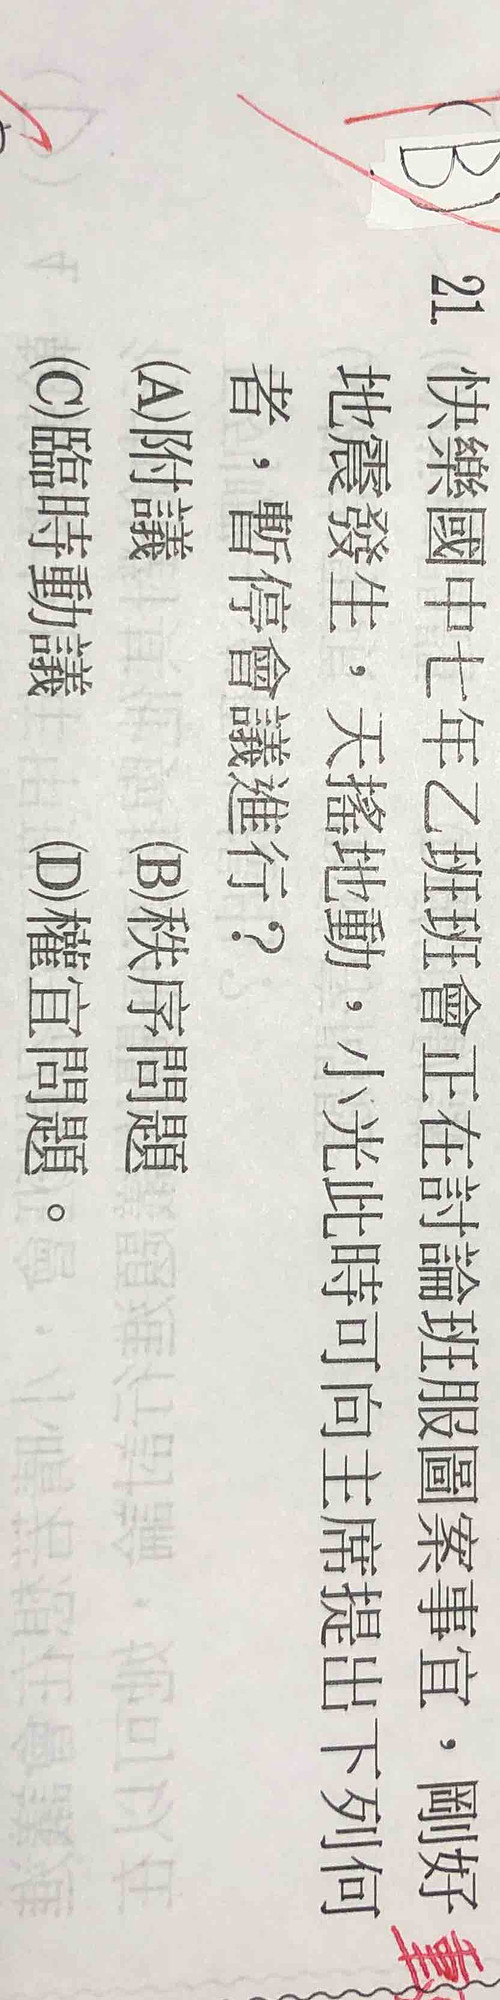 (B) 21. 快樂國中七年乙班班會正在討論班服圖案事宜，剛好
地震發生，天搖地動，小光此時可向主席提出下列何
者，暫停會議進行？
(A)附議 (B)秩序問題
(C)臨時動議 (D)權宜問題。